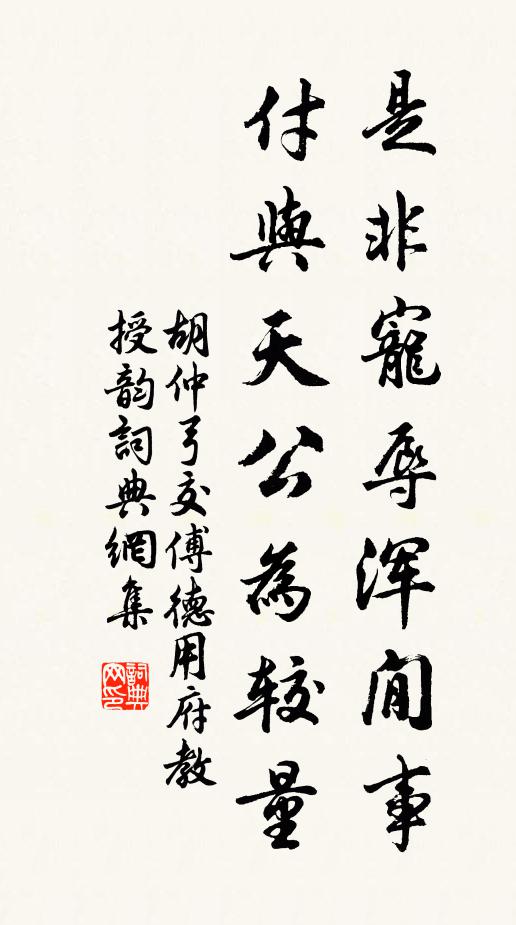 是非寵辱渾閒事
付與天公為較量
胡仲弓交傅德用府教
授韵詞典網集
詞典網印